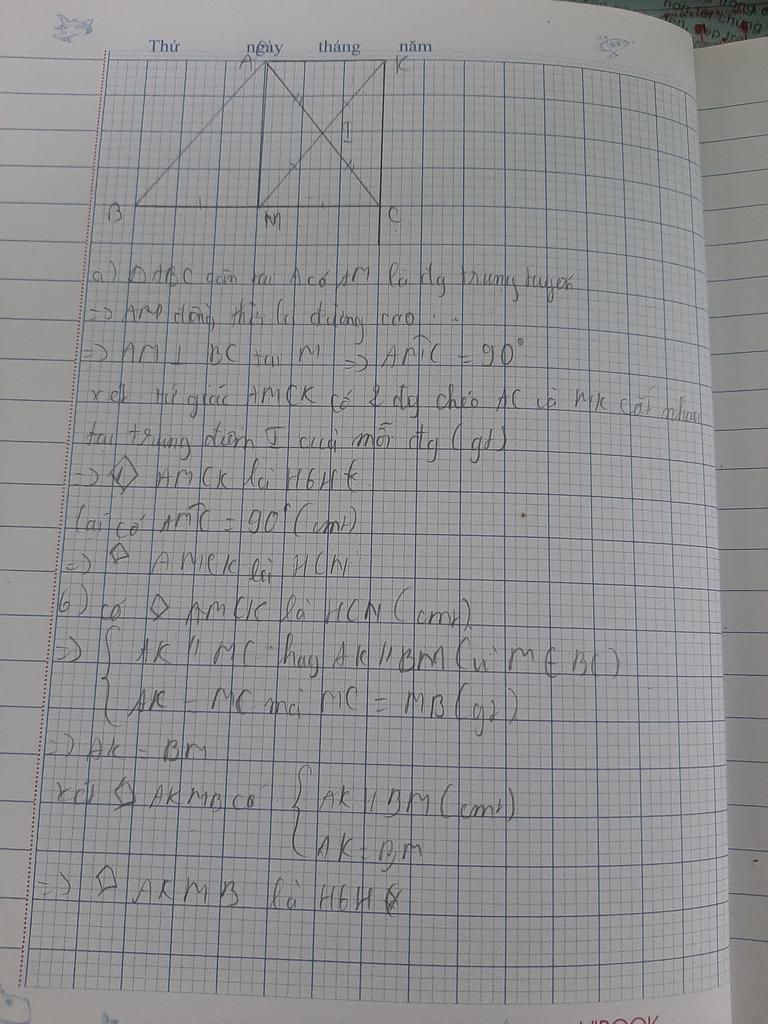 Thứ ngày tháng năm
A K
I
B M C
a) △ ABC cân tại A có AM là đg trung tuyến
=> AM đồng thời là đường cao
=> AM ⊥ BC tại M => AMC = 90°
xét tứ giác AMCK có 2 đg chéo AC và MK cắt nhau
tại trung điểm I của mỗi đg (gt)
=> ◇ AMCK là HbH
lại có AMC = 90° (cmt)
=> ◇ AMCK là HCN
b) có ◇ AMCK là HCN (cmt)
=> { AK // MC hay AK // BM (vì M ∈ BC)
{ AK = MC mà MC = MB (gt)
=> AK = BM
xét ◇ AKMB có { AK // BM (cmt)
{ AK = BM
=> ◇ AKMB là HbH